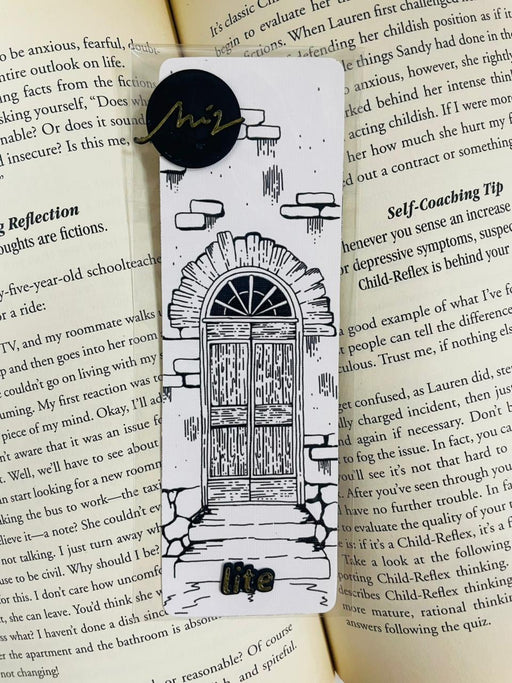 to be anxious, fearful, doubt
entire outlook on life.
ing facts from the fictions
sking yourself, "Does wh
nable? Or does it sound
d insecure? Is this me,
g Reflection
oughts are fictions.
y-five-year-old schoolteache
or a ride:
TV, and my roommate walks
p and then goes into her room
couldn't go on living with my s
uming. My first reaction was t
piece of my mind. Okay, I'll ad
n't aware that it was an issue fo
. Well, we'll have to see about
n start looking for a new roomm
king the bus to work—the tax
lieve it—a note? She couldn't ev
not talking. I just turn away wh
use to be civil. Why should I be
for this. I don't care how uncomf
, she can leave. You'd think she w
ss what? I haven't done a dish sinc
er the apartment and the bathroom is absolu
not changing!
or reasonable? Of course
ish, and spiteful.
miz
lite
It's classic Ch
begin to evaluate her th
fictions. When Lauren first challenged
defending her childish position as if it
the things Sandy had done in the
anxious, however, she rightly
ked behind her intense think
acting childish. If I were more
her how much she hurt my f
out a contract or something
Self-Coaching Tip
henever you sense an increase
or depressive symptoms, suspec
Child-Reflex is behind your
good example of what I've fo
people can tell the difference
culous. Trust me, if nothing else
get confused, as Lauren did, ste
charged incident, then just
again if necessary. Don't b
to fog the issue. In fact, you ca
you'll see it's not that hard to
After you've seen through you
have no further trouble. In fa
to evaluate the quality of your
is: if it's a Child-Reflex, it's a f
Take a look at the following
porting Child-Reflex thinking,
describes Child-Reflex thinking
more mature, rational thinking
answers following the quiz.